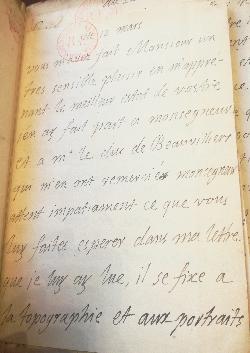 ce 12 mars
vous m'avez fait Monsieur un
tres sensible plaisir en m'appre-
nant le meilleur estat de vostre
j'en ay fait part a monseigneur
et a mr le duc de Beauvilliers
qui m'en ont remercié monseigneur
attent impatiament ce que vous
luy faites esperer dans ma lettre
que je luy ay lue, il se fixe a
la topographie et aux portraits